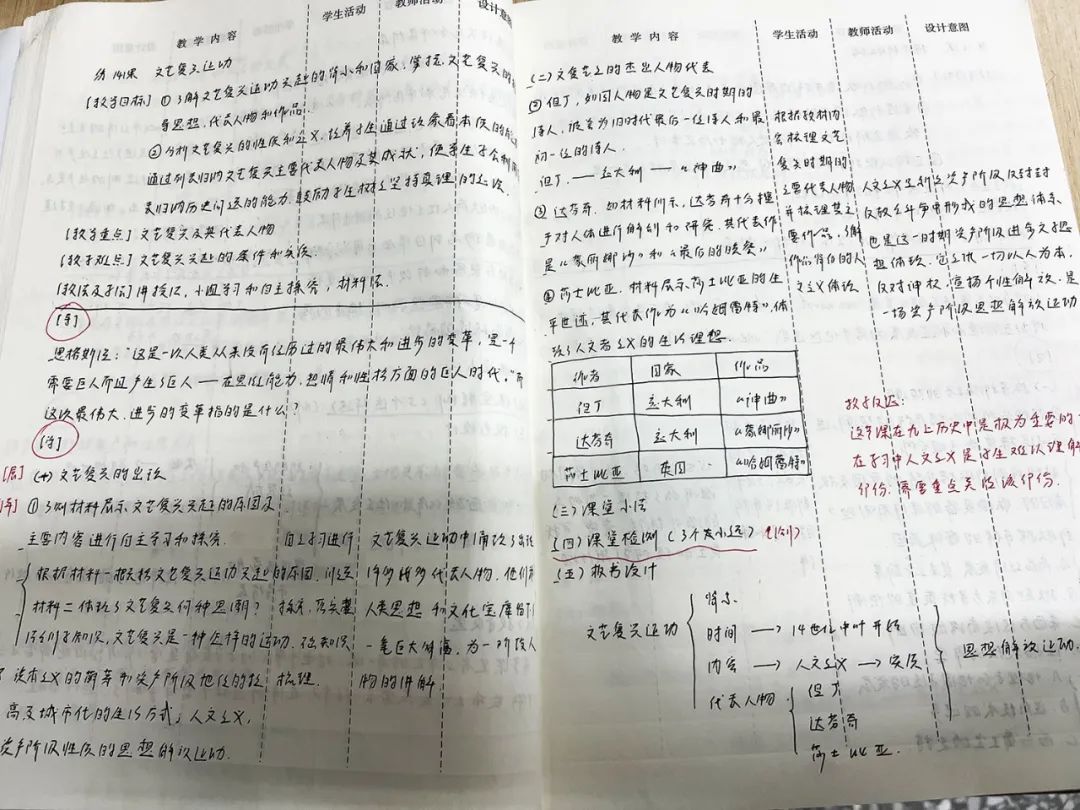 教学内容
学生活动
教师活动
设计意图
第14课 文艺复兴运动
[教学目标] ①了解文艺复兴运动兴起的背景和国家,掌握文艺复兴的
导思想,代表人物和作品.
②分析文艺复兴的性质和意义,培养学生通过
通过列表归纳文艺复兴主要代表人物及其成就,使学生学会利用
表归纳历史问题的能力,鼓励学生树立坚持真理的
[教学重点] 文艺复兴及其代表人物
[教学难点] 文艺复兴兴起的条件和实质.
[教法及学法] 讲授法,小组学习和自主探究,材料法.
[导]
恩格斯说:“这是一次人类从来没有经历过的最伟大和进步的变革,是一个
需要巨人而且产生了巨人——在思维能力,热情和性格方面的巨人时代。”而
这次最伟大、进步的变革指的是什么?
[讲]
(一)文艺复兴的出现
①多则材料展示文艺复兴兴起的原因及
主要内容进行自主学习和探究.
根据材料一概括文艺复兴运动兴起的原因,
材料二体现了文艺复兴何种思潮?
文艺复兴是一种
资本主义的萌芽和资产阶级地位的提
高及城市化的生活方式;人文主义,
资产阶级性质的思想解放运动.
自主学习进行
探究,落实基
础知识
梳理.
文艺复兴运动中涌现了出
许多诸多代表人物,他们为
人类思想和文化宝库留下
一笔巨大财富,为一阶段人
物的讲解
教学内容
学生活动
教师活动
设计意图
(二)文艺复兴的杰出人物代表
②但丁,如图人物是文艺复兴时期的
诗人,被誉为旧时代最后一位诗人和最
初一位的诗人.
但丁.——意大利——《神曲》
③达芬奇,如材料所示,达芬奇十分擅
于对人体进行解剖和研究,其代表作
是《蒙娜丽沙》和《最后的晚餐》
④莎士比亚.材料展示莎士比亚的生
平世迹,其代表作为《哈姆雷特》体
现了人文者主义的生活理想.
作者 国家 作品
但丁 意大利 《神曲》
达芬奇 意大利 《蒙娜丽沙》
莎士比亚 英国 《哈姆雷特》
根据教材内
容梳理文艺
复兴时期的
主要代表人物
并梳理其主
要作品,了解
作品背后的人
文主义体现
人文主义是新兴资产阶级反封建
反教会斗争中形成的思想体系,
也是这一时期资产阶级进步文学思
想体现,它主张一切以人为本,
反对神权,宣扬个性解放,是
一场资产阶级思想解放运动
教学反思:
这节课在九上历史中是极为重要的
在学习中人文主义是学生难以理解
部份.需要重点关注该部份.
(三)课堂小结
(四)课堂检测(3个及小题)
(五)板书设计
文艺复兴运动
背景
时间 → 14世纪中叶开始
内容 → 人文主义 → 实质
代表人物
但丁
达芬奇
莎士比亚.
思想解放运动.